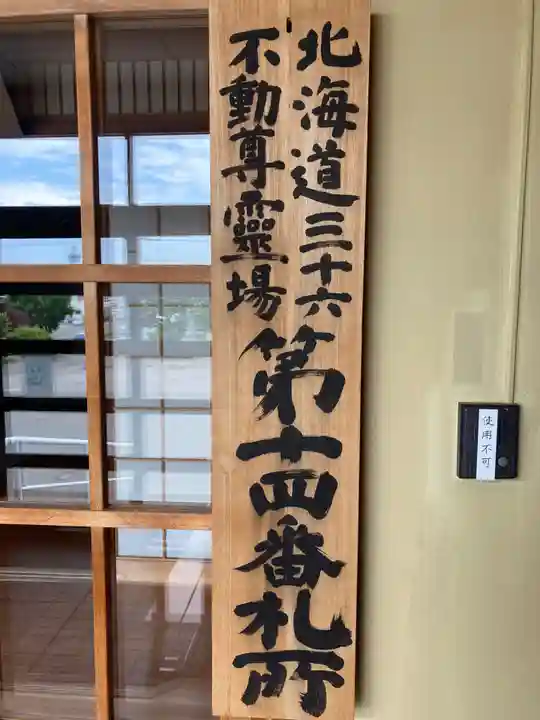 北海道三十六
不動尊靈場
第十四番札所
使用不可